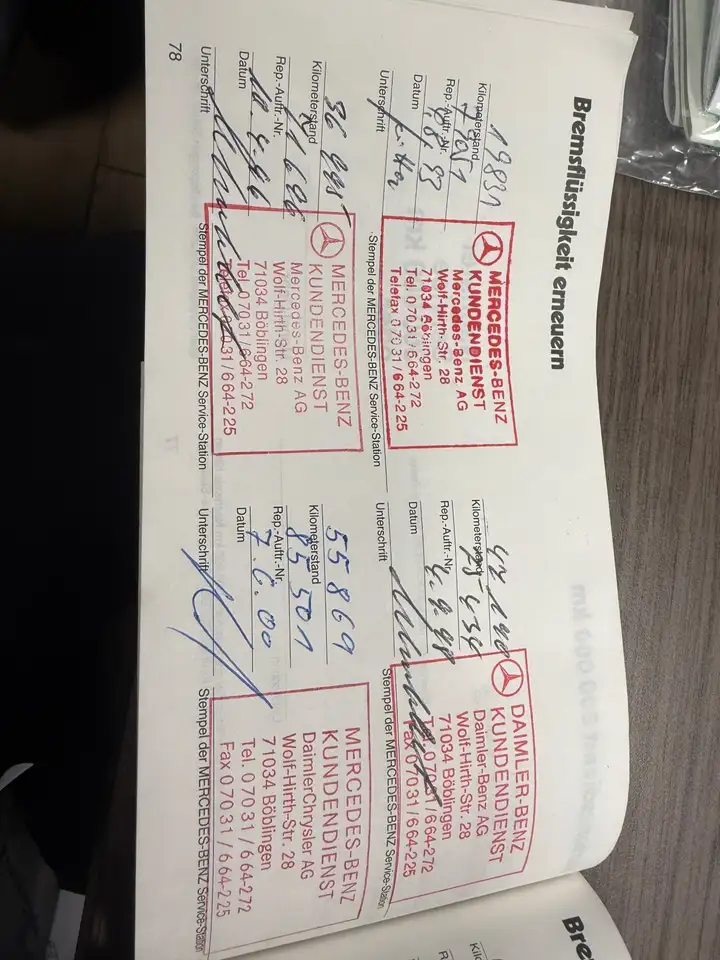 Bremsflüssigkeit erneuern
19831
Kilometerstand
77051
Rep.-Auftr.-Nr.
Datum
Unterschrift
MERCEDES-BENZ
KUNDENDIENST
Mercedes-Benz AG
Wolf-Hirth-Str. 28
71034 Böblingen
Tel. 0 70 31 / 6 64-2 72
Telefax 0 70 31 / 6 64-2 25
Stempel der MERCEDES-BENZ Service-Station
47 140
Kilometerstand
75434
Rep.-Auftr.-Nr.
4.9.98
Datum
Unterschrift
DAIMLER-BENZ
KUNDENDIENST
Daimler-Benz AG
Wolf-Hirth-Str. 28
71034 Böblingen
Tel. 0 70 31 / 6 64-2 72
Fax 0 70 31 / 6 64-2 25
Stempel der MERCEDES-BENZ Service-Station
Kilometerstand
Rep.-Auftr.-Nr.
10.4.96
Datum
Unterschrift
MERCEDES-BENZ
KUNDENDIENST
Mercedes-Benz AG
Wolf-Hirth-Str. 28
71034 Böblingen
Tel. 0 70 31 / 6 64-2 72
Telefax 0 70 31 / 6 64-2 25
Stempel der MERCEDES-BENZ Service-Station
55 869
Kilometerstand
85501
Rep.-Auftr.-Nr.
7.6.00
Datum
Unterschrift
MERCEDES-BENZ
KUNDENDIENST
DaimlerChrysler AG
Wolf-Hirth-Str. 28
71034 Böblingen
Tel. 0 70 31 / 6 64-2 72
Fax 0 70 31 / 6 64-2 25
Stempel der MERCEDES-BENZ Service-Station
78
Bre